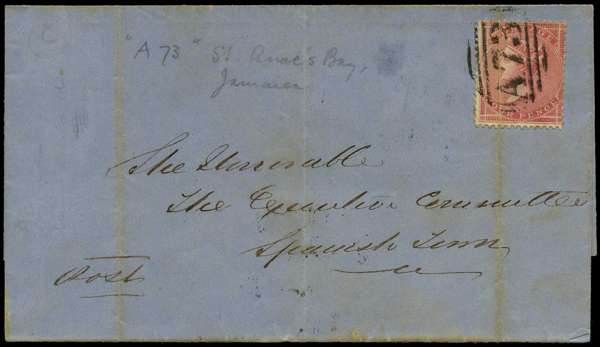 "A 73" St. Anne's Bay,
Jamaica
A73
PENCE
The Honorable
The Executive Committee
Spanish Town
Post